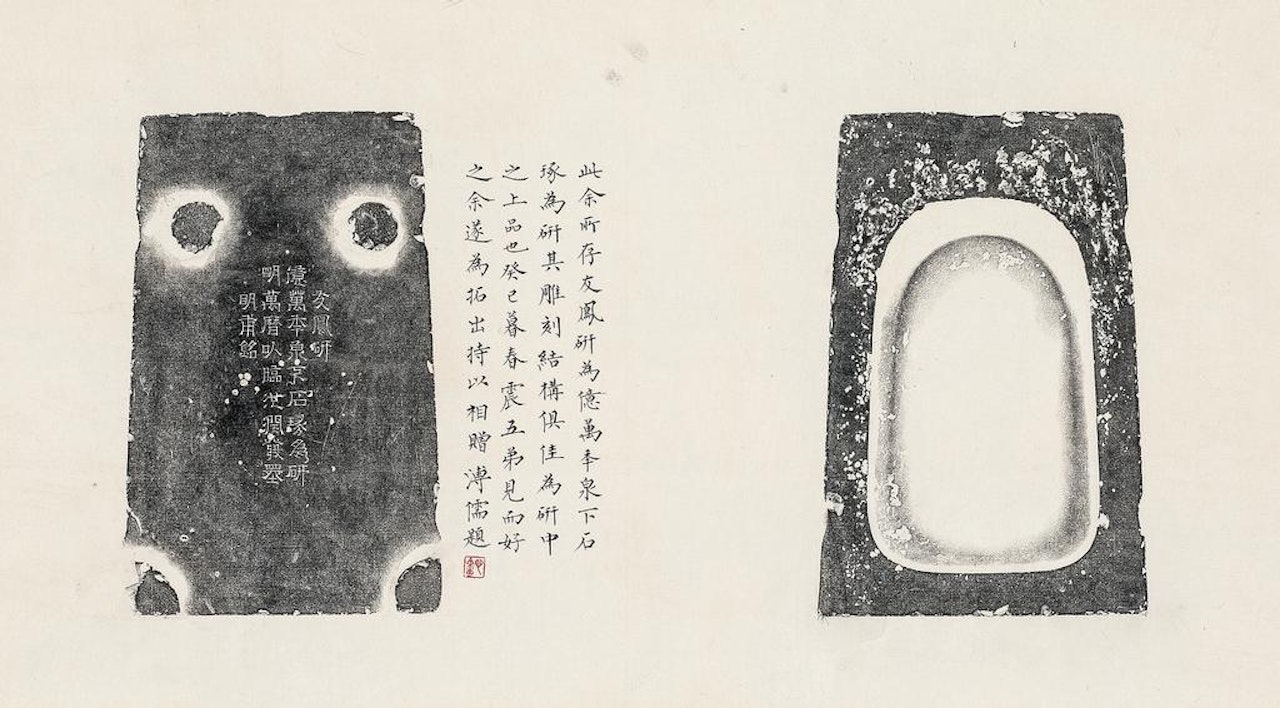 此余所存友鳳研為億萬年泉下石
琢為研其雕刻結構俱佳為研中
之上品也癸巳暮春震五弟見而好
之余遂為拓出持以相贈溥儒題
友鳳研
億萬年泉下石琢為研
明萬曆以臨池潤發墨
明甫銘